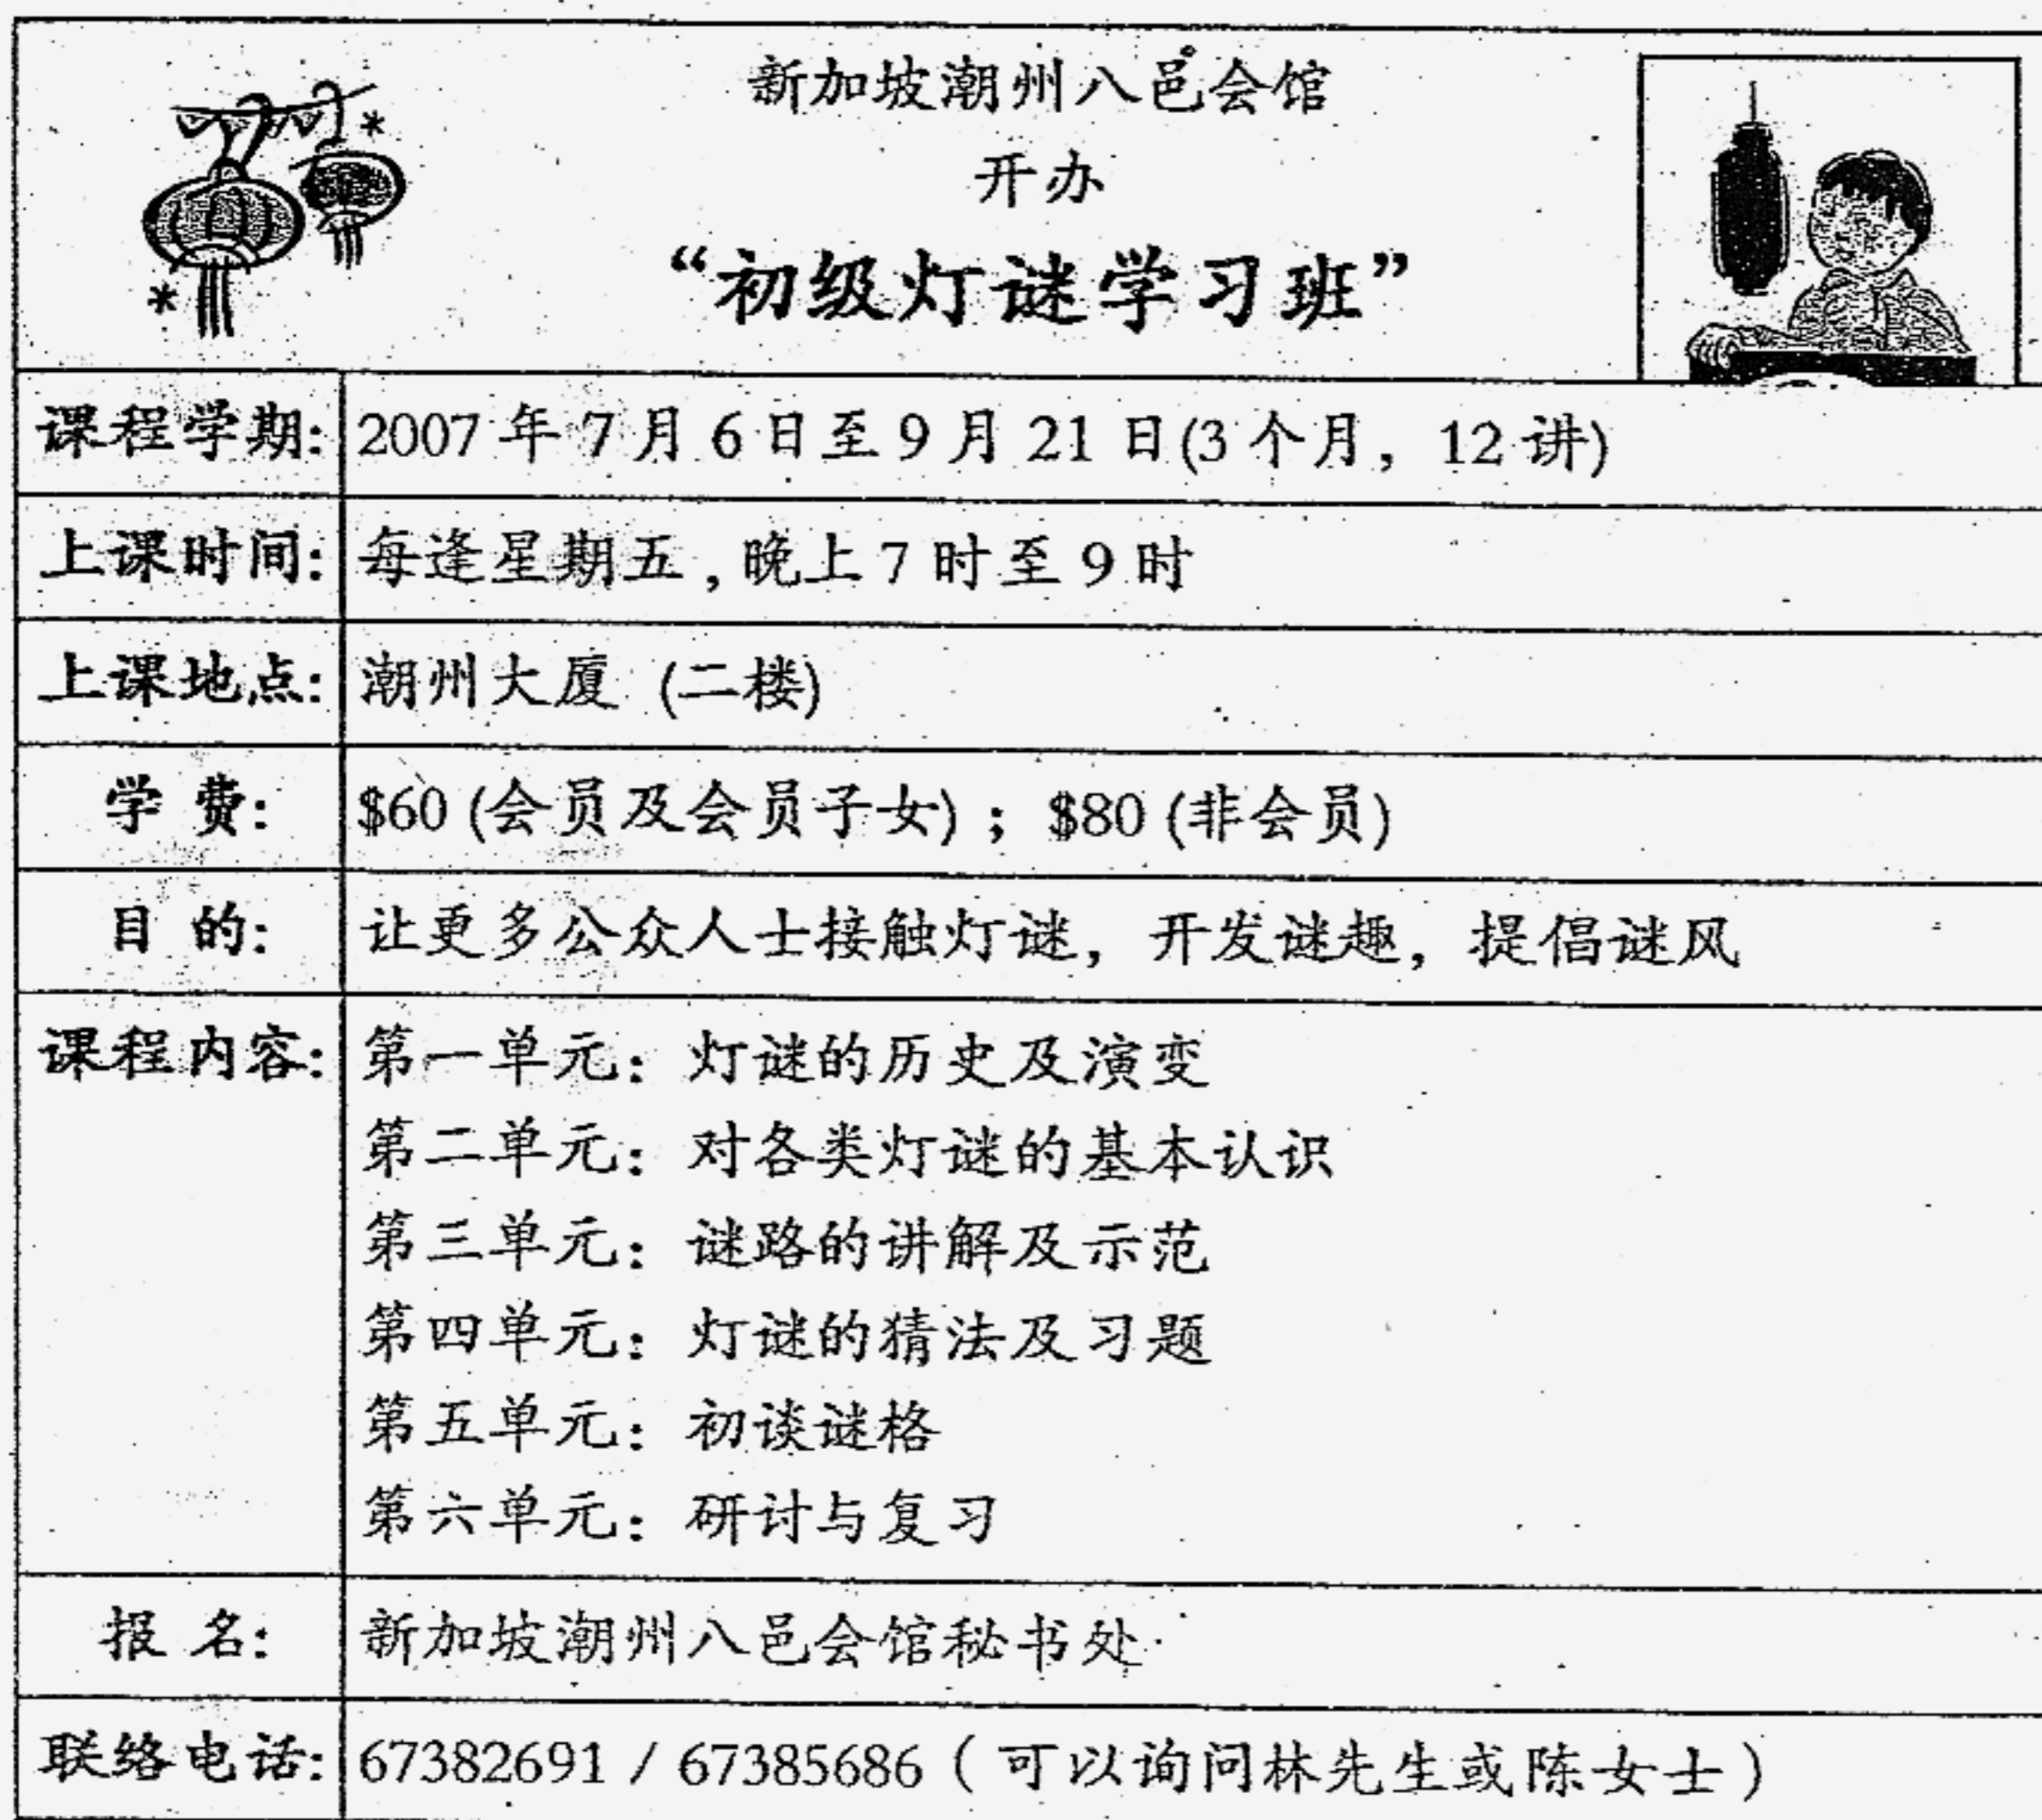 新加坡潮州八邑会馆
开办
“初级灯谜学习班”
课程学期: 2007 年 7 月 6 日至 9 月 21 日(3 个月，12 讲)
上课时间: 每逢星期五 , 晚上 7 时至 9 时
上课地点: 潮州大厦 (二楼)
学 费: $60 (会员及会员子女) ；$80 (非会员)
目 的: 让更多公众人士接触灯谜，开发谜趣，提倡谜风
课程内容: 第一单元：灯谜的历史及演变
第二单元：对各类灯谜的基本认识
第三单元：谜路的讲解及示范
第四单元：灯谜的猜法及习题
第五单元：初谈谜格
第六单元：研讨与复习
报 名: 新加坡潮州八邑会馆秘书处
联络电话: 67382691 / 67385686（可以询问林先生或陈女士）